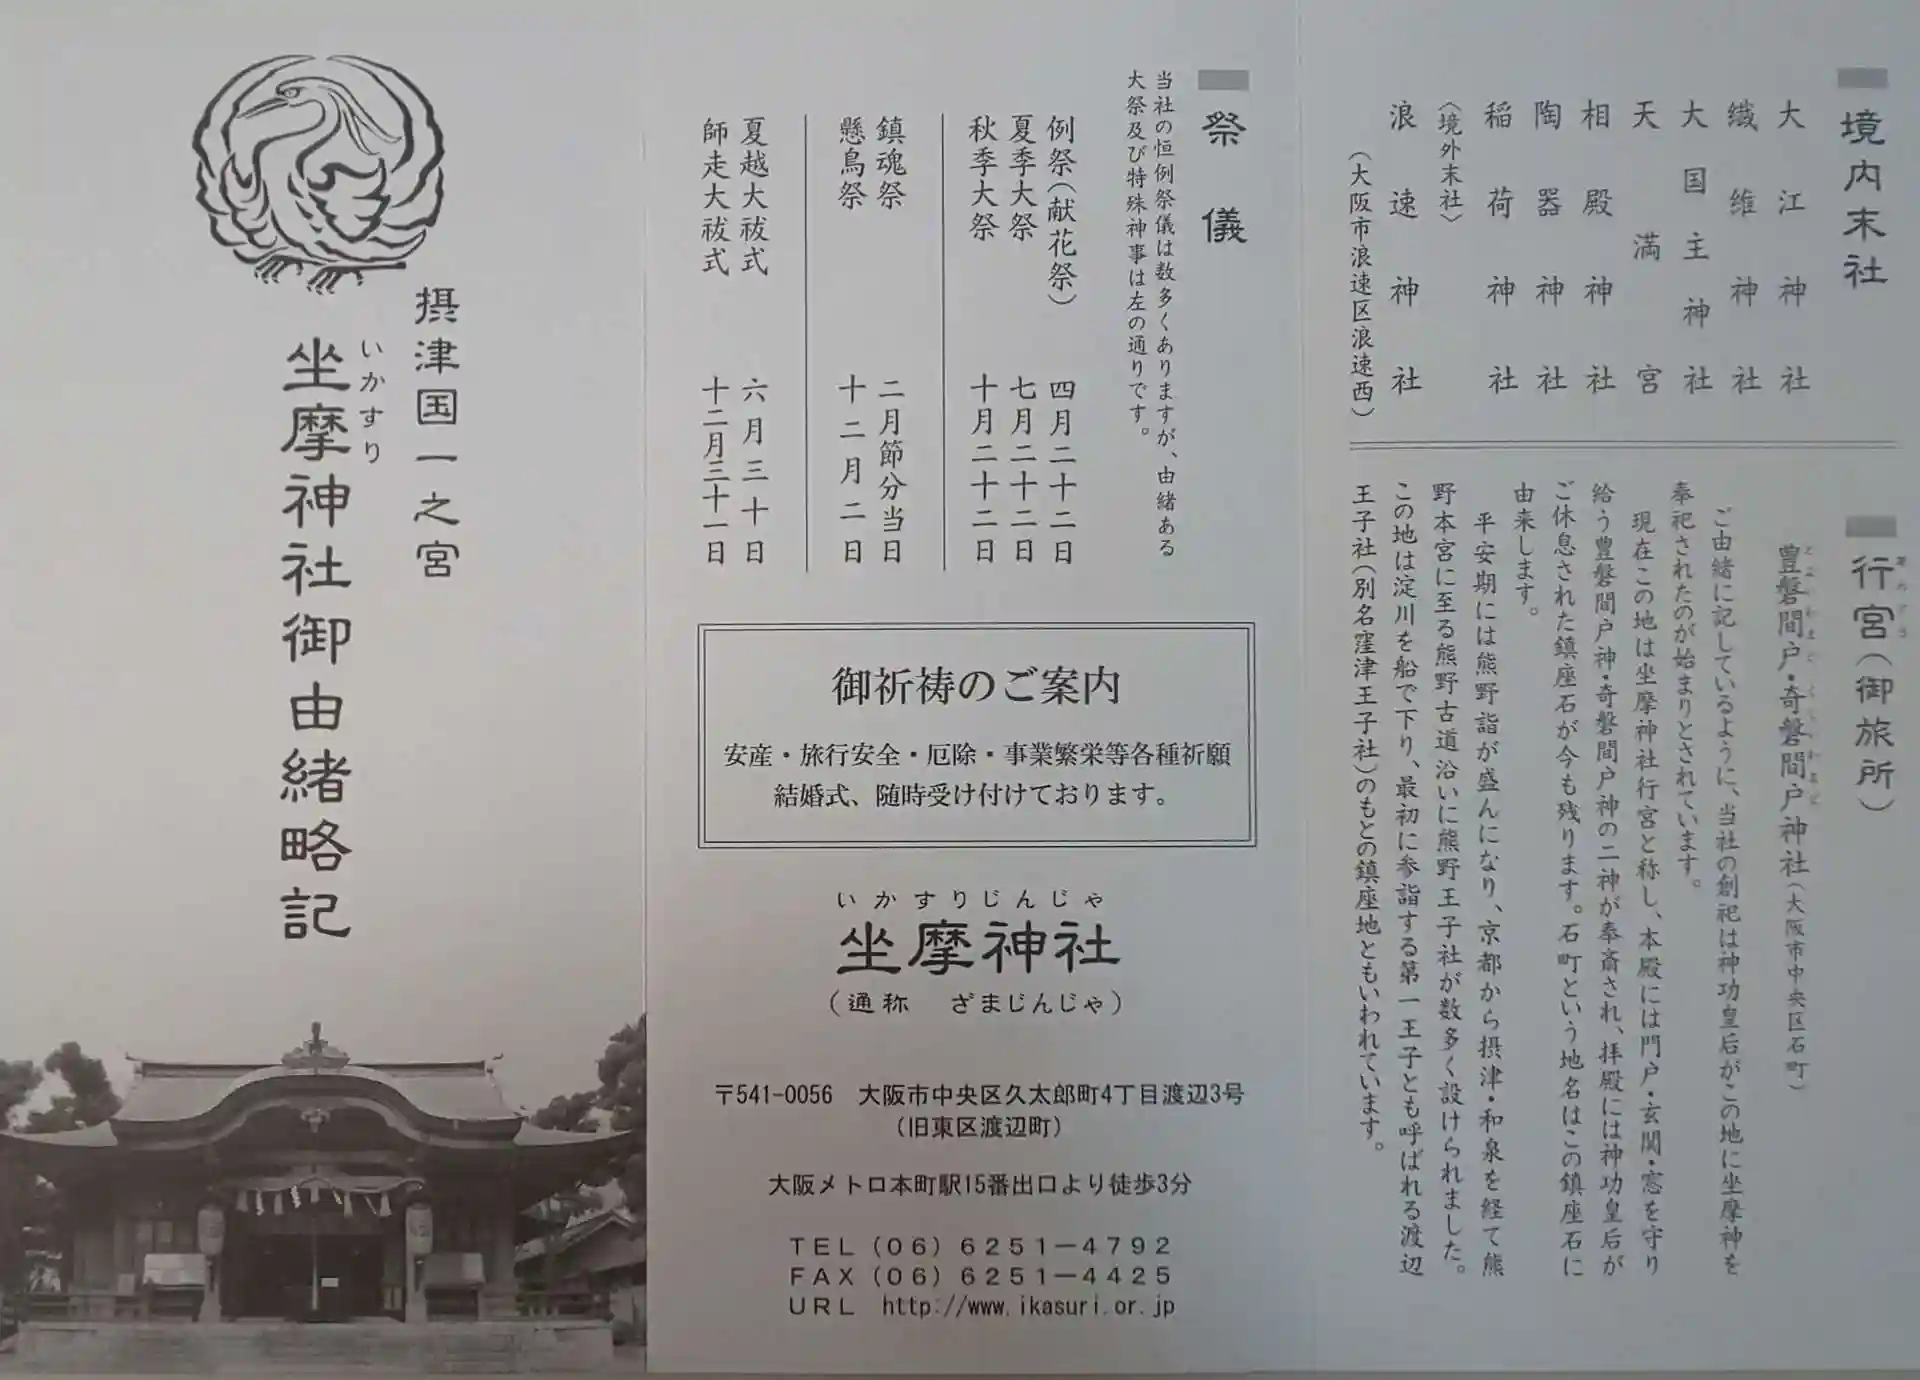 境内末社
大江神社
繊維神社
大国主神社
天満宮
相殿神社
陶器神社
稲荷神社
〈境外末社〉
浪速神社
（大阪市浪速区浪速西）
行宮（御旅所）
豊磐間戸・奇磐間戸神社（大阪市中央区石町）
ご由緒に記しているように、当社の創祀は神功皇后がこの地に坐摩神を
奉祀されたのが始まりとされています。
現在この地は坐摩神社行宮と称し、本殿には門戸・玄関・窓を守り
給う豊磐間戸神・奇磐間戸神の二神が奉斎され、拝殿には神功皇后が
ご休息された鎮座石が今も残ります。石町という地名はこの鎮座石に
由来します。
平安期には熊野詣が盛んになり、京都から摂津・和泉を経て熊
野本宮に至る熊野古道沿いに熊野王子社が数多く設けられました。
この地は淀川を船で下り、最初に参詣する第一王子とも呼ばれる渡辺
王子社（別名窪津王子社）のもとの鎮座地ともいわれています。
祭儀
当社の恒例祭儀は数多くありますが、由緒ある
大祭及び特殊神事は左の通りです。
例祭（献花祭） 四月二十二日
夏季大祭 七月二十二日
秋季大祭 十月二十二日
鎮魂祭 二月節分当日
懸鳥祭 十二月二日
夏越大祓式 六月三十日
師走大祓式 十二月三十一日
御祈祷のご案内
安産・旅行安全・厄除・事業繁栄等各種祈願
結婚式、随時受け付けております。
いかすりじんじゃ
坐摩神社
（通称 ざまじんじゃ）
〒541-0056 大阪市中央区久太郎町4丁目渡辺3号
（旧東区渡辺町）
大阪メトロ本町駅15番出口より徒歩3分
TEL（06）6251－4792
FAX（06）6251－4425
URL http://www.ikasuri.or.jp
摂津国一之宮
いかすり
坐摩神社御由緒略記